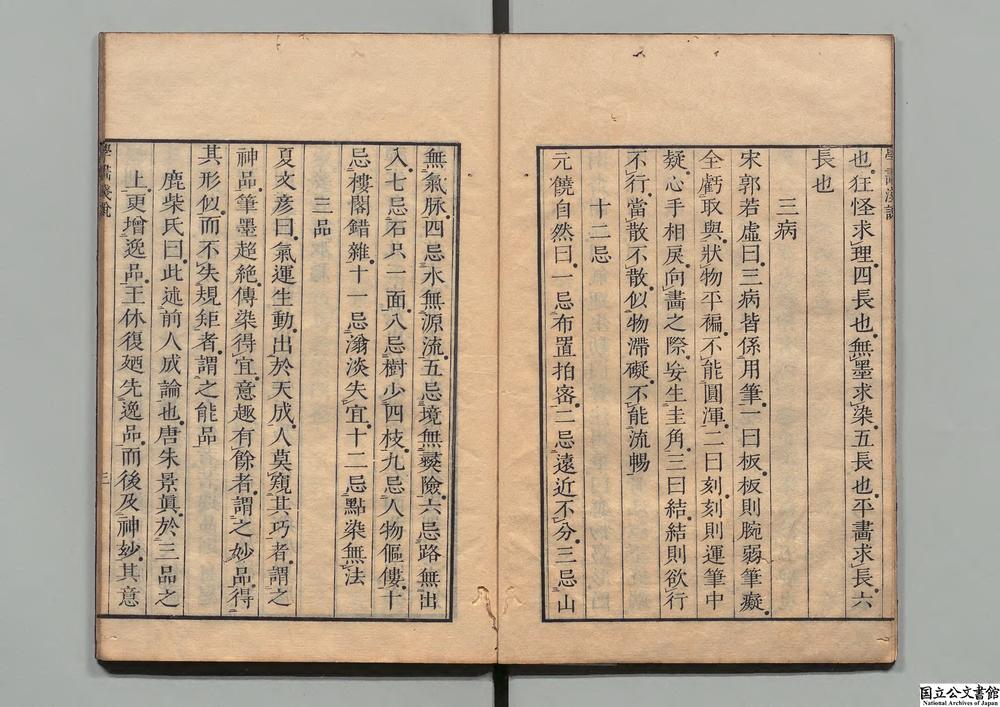 也。狂怪求理。四長也。無墨求染。五長也。平畫求長。六
長也
三病
宋郭若虛曰三病皆係用筆。一曰板。板則腕弱筆癡。
全虧取與。狀物平褊。不能圓渾。二曰刻。刻則運筆中
疑。心手相戾。向畫之際。妄生圭角。三曰結。結則欲行
不行。當散不散。似物滯礙。不能流暢
十二忌
元饒自然曰。一忌布置拍密。二忌遠近不分。三忌山
無氣脉。四忌水無源流。五忌境無夷險。六忌路無出
入。七忌石只一面。八忌樹少四枝。九忌人物傴僂。十
忌樓閣錯雜。十一忌滃淡失宜。十二忌點染無法
三品
夏文彥曰。氣運生動。出於天成。人莫窺其巧者。謂之
神品。筆墨超絶。傳染得宜。意趣有餘者。謂之妙品。得
其形似。而不失規矩者。謂之能品
鹿柴氏曰。此述前人成論也。唐朱景眞。於三品之
上。更增逸品。王休復廼先逸品。而後及神妙。其意
學畫淺說
三
學畫淺說
国立公文書館
National Archives of Japan